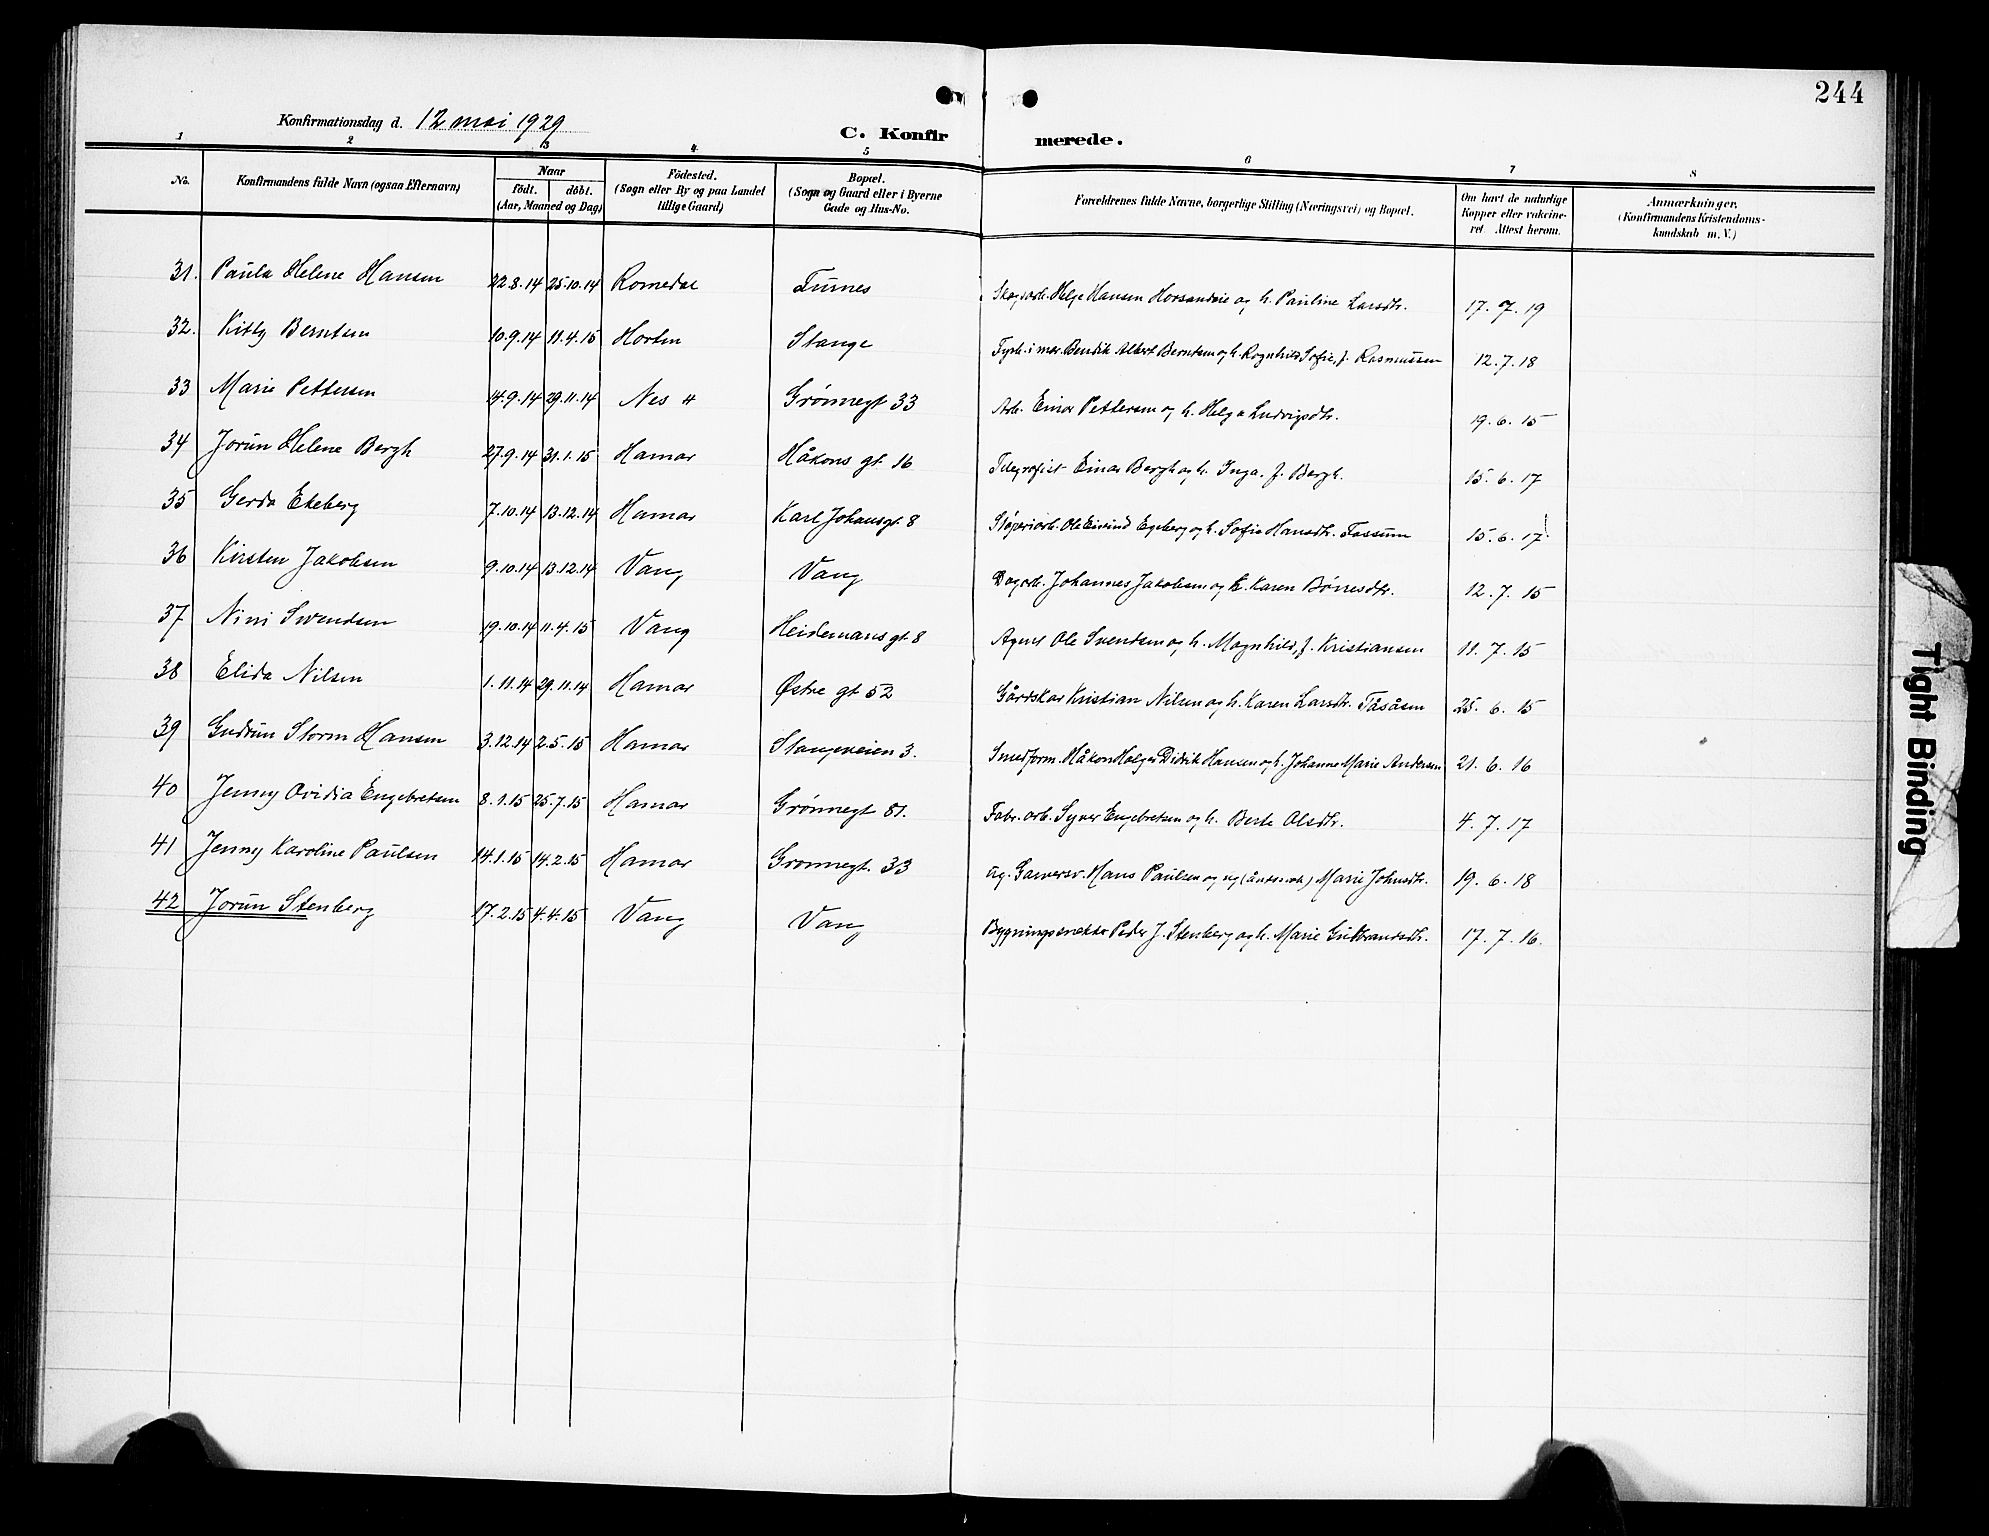 244
Konfirmationsdag d. 12 mai 1929
C. Konfirmerede.
1 2 3 4 5 6 7 8
No. | Konfirmandens fulde Navn (ogsaa Efternavn) | Naar födt. döbt. (Aar, Maaned og Dag) | Födested. (Sogn eller By og paa Landet tillige Gaard) | Bopæl. (Sogn og Gaard eller i Byerne Gade og Hus-No. | Forældrenes fulde Navne, borgerlige Stilling (Næringsvei) og Bopæl. | Om havt de naturlige Kopper eller vakcineret. Attest herom. | Anmærkninger. (Konfirmandens Kristendomskundskab m. V.)
31. Paula Helene Hansen 22.8.14 25.10.14 Romedal Tumes Skogsarb. Helge Hansen og h. Pauline Larsdtr. 17.7.19
32. Kitty Berntsen 10.9.14 11.4.15 Horten Stange Fyrb. i mar. Bendik Albert Berntsen og h. Ragnhild Sofie, f. Rasmussen 12.7.18
33 Marie Pettersen 14.9.14 29.11.14 Nes H Grönnegt 33 Arb. Einar Pettersen og h. Helga Ludvigsdtr. 19.6.15
34 Jorun Helene Bergh 27.9.14 31.1.15 Hamar Håkons gt. 16 Telegrafist Einar Bergh og h. Inga. f. Bergh. 15.6.17
35 Gerda Ekeberg 7.10.14 13.12.14 Hamar Karl Johansgt. 8 Støperiarb. Ole Eivind Egeberg og h. Sofie Hansdtr. Fossum 15.6.17
36 Kirsten Jakobsen 9.10.14 13.12.14 Vang Vang Dagarb. Johannes Jakobsen og h. Karen Börresdtr. 12.7.15
37 Nini Svendsen 19.10.14 11.4.15 Vang Heidemans gt. 8 Agent Ole Svendsen og h. Magnhild, f. Kristiansen 11.7.15
38 Elida Nilsen 1.11.14 29.11.14 Hamar Østre gt 52 Gårdskar Kristian Nilsen og h. Karen Larsdtr. Tåsåsen 25.6.15
39 Gudrun Storm Hansen 3.12.14 2.5.15 Hamar Stangeveien 3. Smedform. Håkon Holger Didrik Hansen og h. Johanne Marie Andersen 21.6.16
40 Jenny Ovidia Engebretsen 8.1.15 25.7.15 Hamar Grönnegt 81. Fabr. arb. Syver Engebretsen og h. Berte Olsdtr. 4.7.17
41 Jenny Karoline Paulsen 14.1.15 14.2.15 Hamar Grönnegt. 33 ug. Garversv. Hans Paulsen og ug Marie Johnsdtr. 19.6.18
42 Jorun Stenberg 17.2.15 4.4.15 Vang Vang Bygningssnekker Peder J. Stenberg og h. Marie Gulbrandsdtr. 17.7.16.
Tight Binding